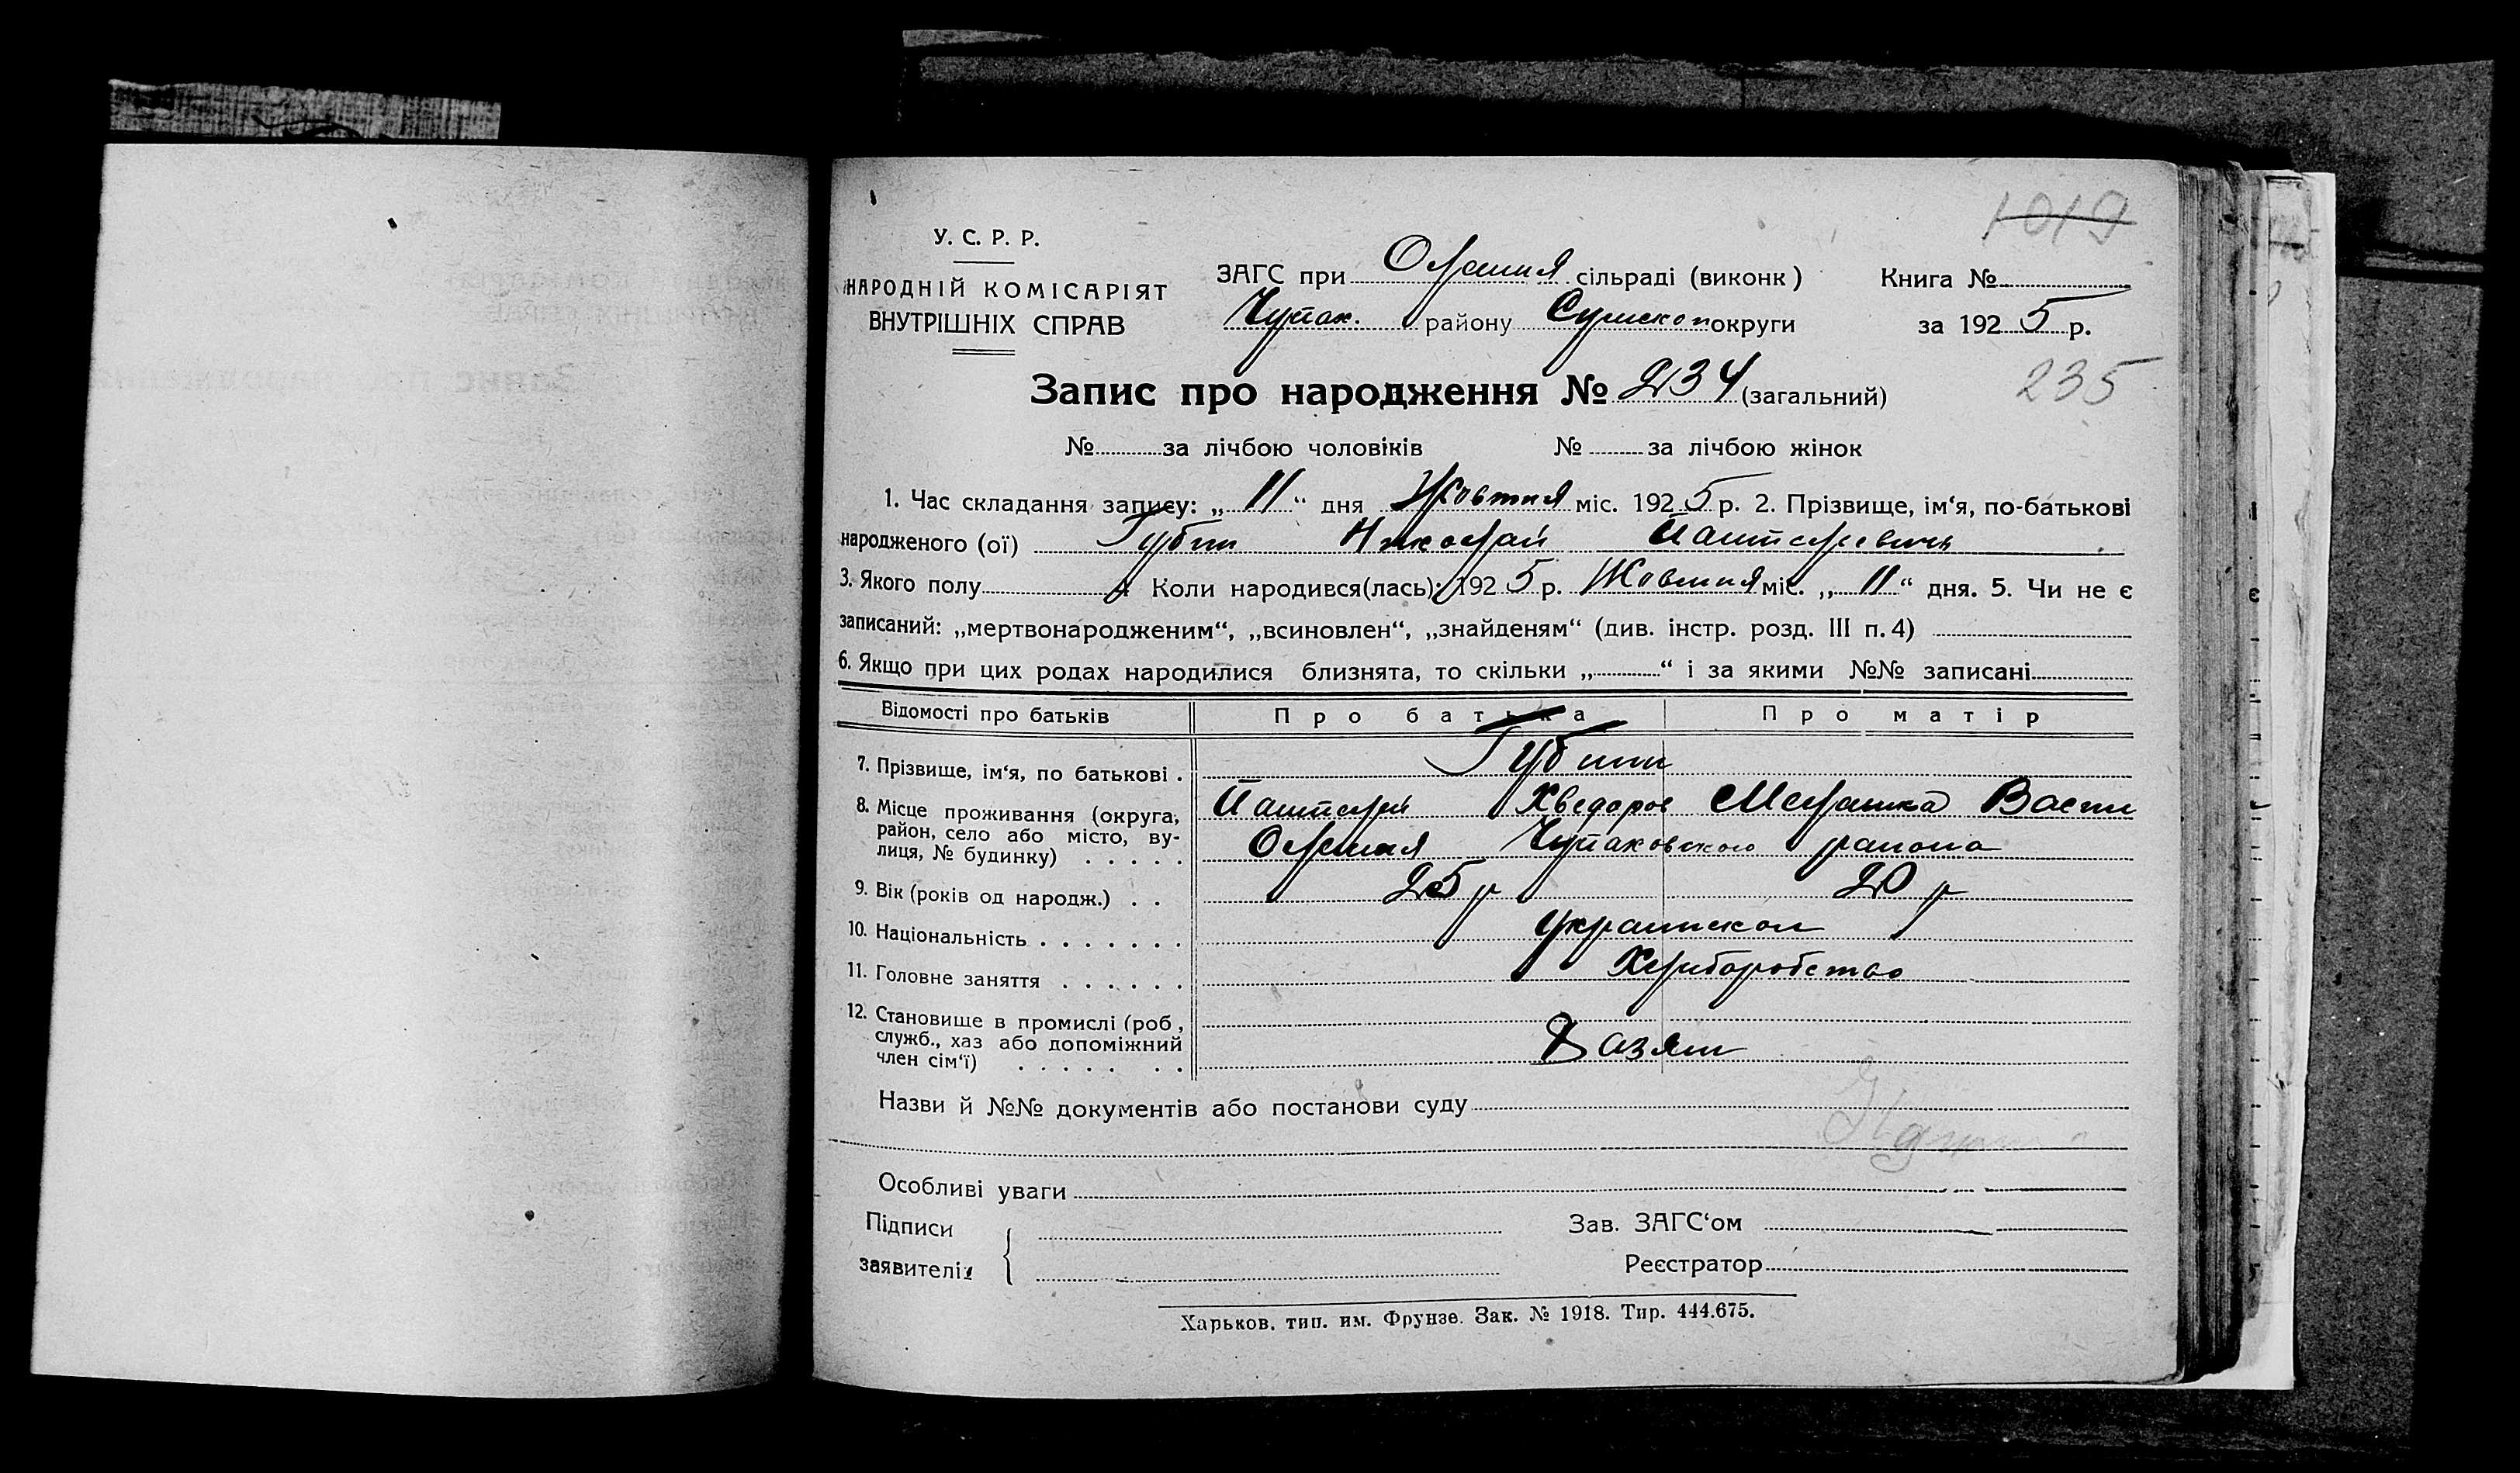 1019
У. С. Р. Р.
НАРОДНІЙ КОМІСАРІЯТ
ВНУТРІШНІХ СПРАВ
ЗАГС при Олешня сільраді (виконк)
Чупах. району Сумскоп округи
Книга №
за 1925 р.
Запис про народження № 234 (загальний)
235
№ за лічбою чоловіків № за лічбою жінок
1. Час складання запису: „ 11 “ дня Жовтня міс. 1925 р. 2. Прізвище, ім‘я, по-батькові
народженого (ої) Губин Николай Пантелеевичь
3. Якого полу 4. Коли народився(лась): 1925 р. Жовтня міс. „ 11 “ дня. 5. Чи не є
записаний: „мертвонародженим“, „всиновлен“, „знайденям“ (див. інстр. розд. III п. 4)
6. Якщо при цих родах народилися близнята, то скільки „ “ і за якими №№ записані
Відомості про батьків Про батька Про матір
7. Прізвище, ім‘я, по батькові . Губин
Пантелей Хведоров Мелашка Васил
8. Місце проживання (округа,
район, село або місто, ву-
лиця, № будинку) . . . . . Олешня Чупаховского района
9. Вік (років од народж.) . . 25 р 20 р
10. Національність . . . . . . . украинской
11. Головне заняття . . . . . . Хлиборобство
12. Становище в промислі (роб.,
служб., хаз або допоміжний
член сім‘ї) . . . . . . .
Назви й №№ документів або постанови суду
Особливі уваги
Підписи
заявителів
Зав. ЗАГС‘ом
Реєстратор
Харьков. тип. им. Фрунзе. Зак. № 1918. Тир. 444.675.